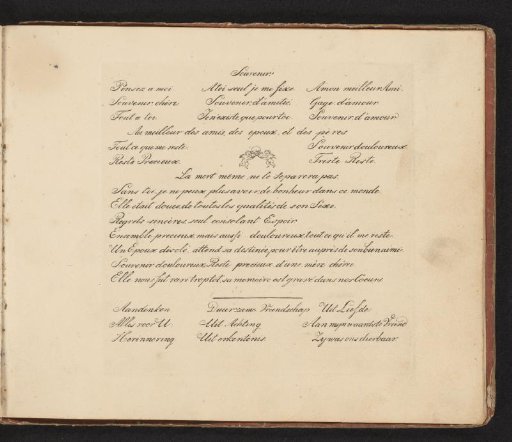 Souvenir
Pensez a moi A toi seul je me fixe A mon meilleur Ami
Souvenir chère Souvenir d'amitie Gage d'amour
Tout a toi Je n'existe que pour toi Souvenir d'amour
Au meilleur des amis, des epoux, et des peres
Tout ce que me reste Souvenir douloureux
Reste Precieux Triste Reste
La mort meme ne le separera pas
Sans toi je ne peux plus avoir de bonheur dans ce monde
Elle était douce de toutes les qualités de son Sexe
Regrets sincères seul consolant Espoir
Ensemble precieux mais aussi douloureux tout ce qui me reste
Un Epoux desolé attend sa destinée pour être aupris de son bien aimé
Souvenir douloureux Reste precieux d'une mère chère
Elle nous fut ravi trop tot sa memoire est gravée dans nos Coeurs
Aandenken Duurzame Vriendschap Uit Liefde
Alles voor U Uit Achting Aan myn waardste Vriend
Herinnering Uit erkentenis Zy was ons dierbaar